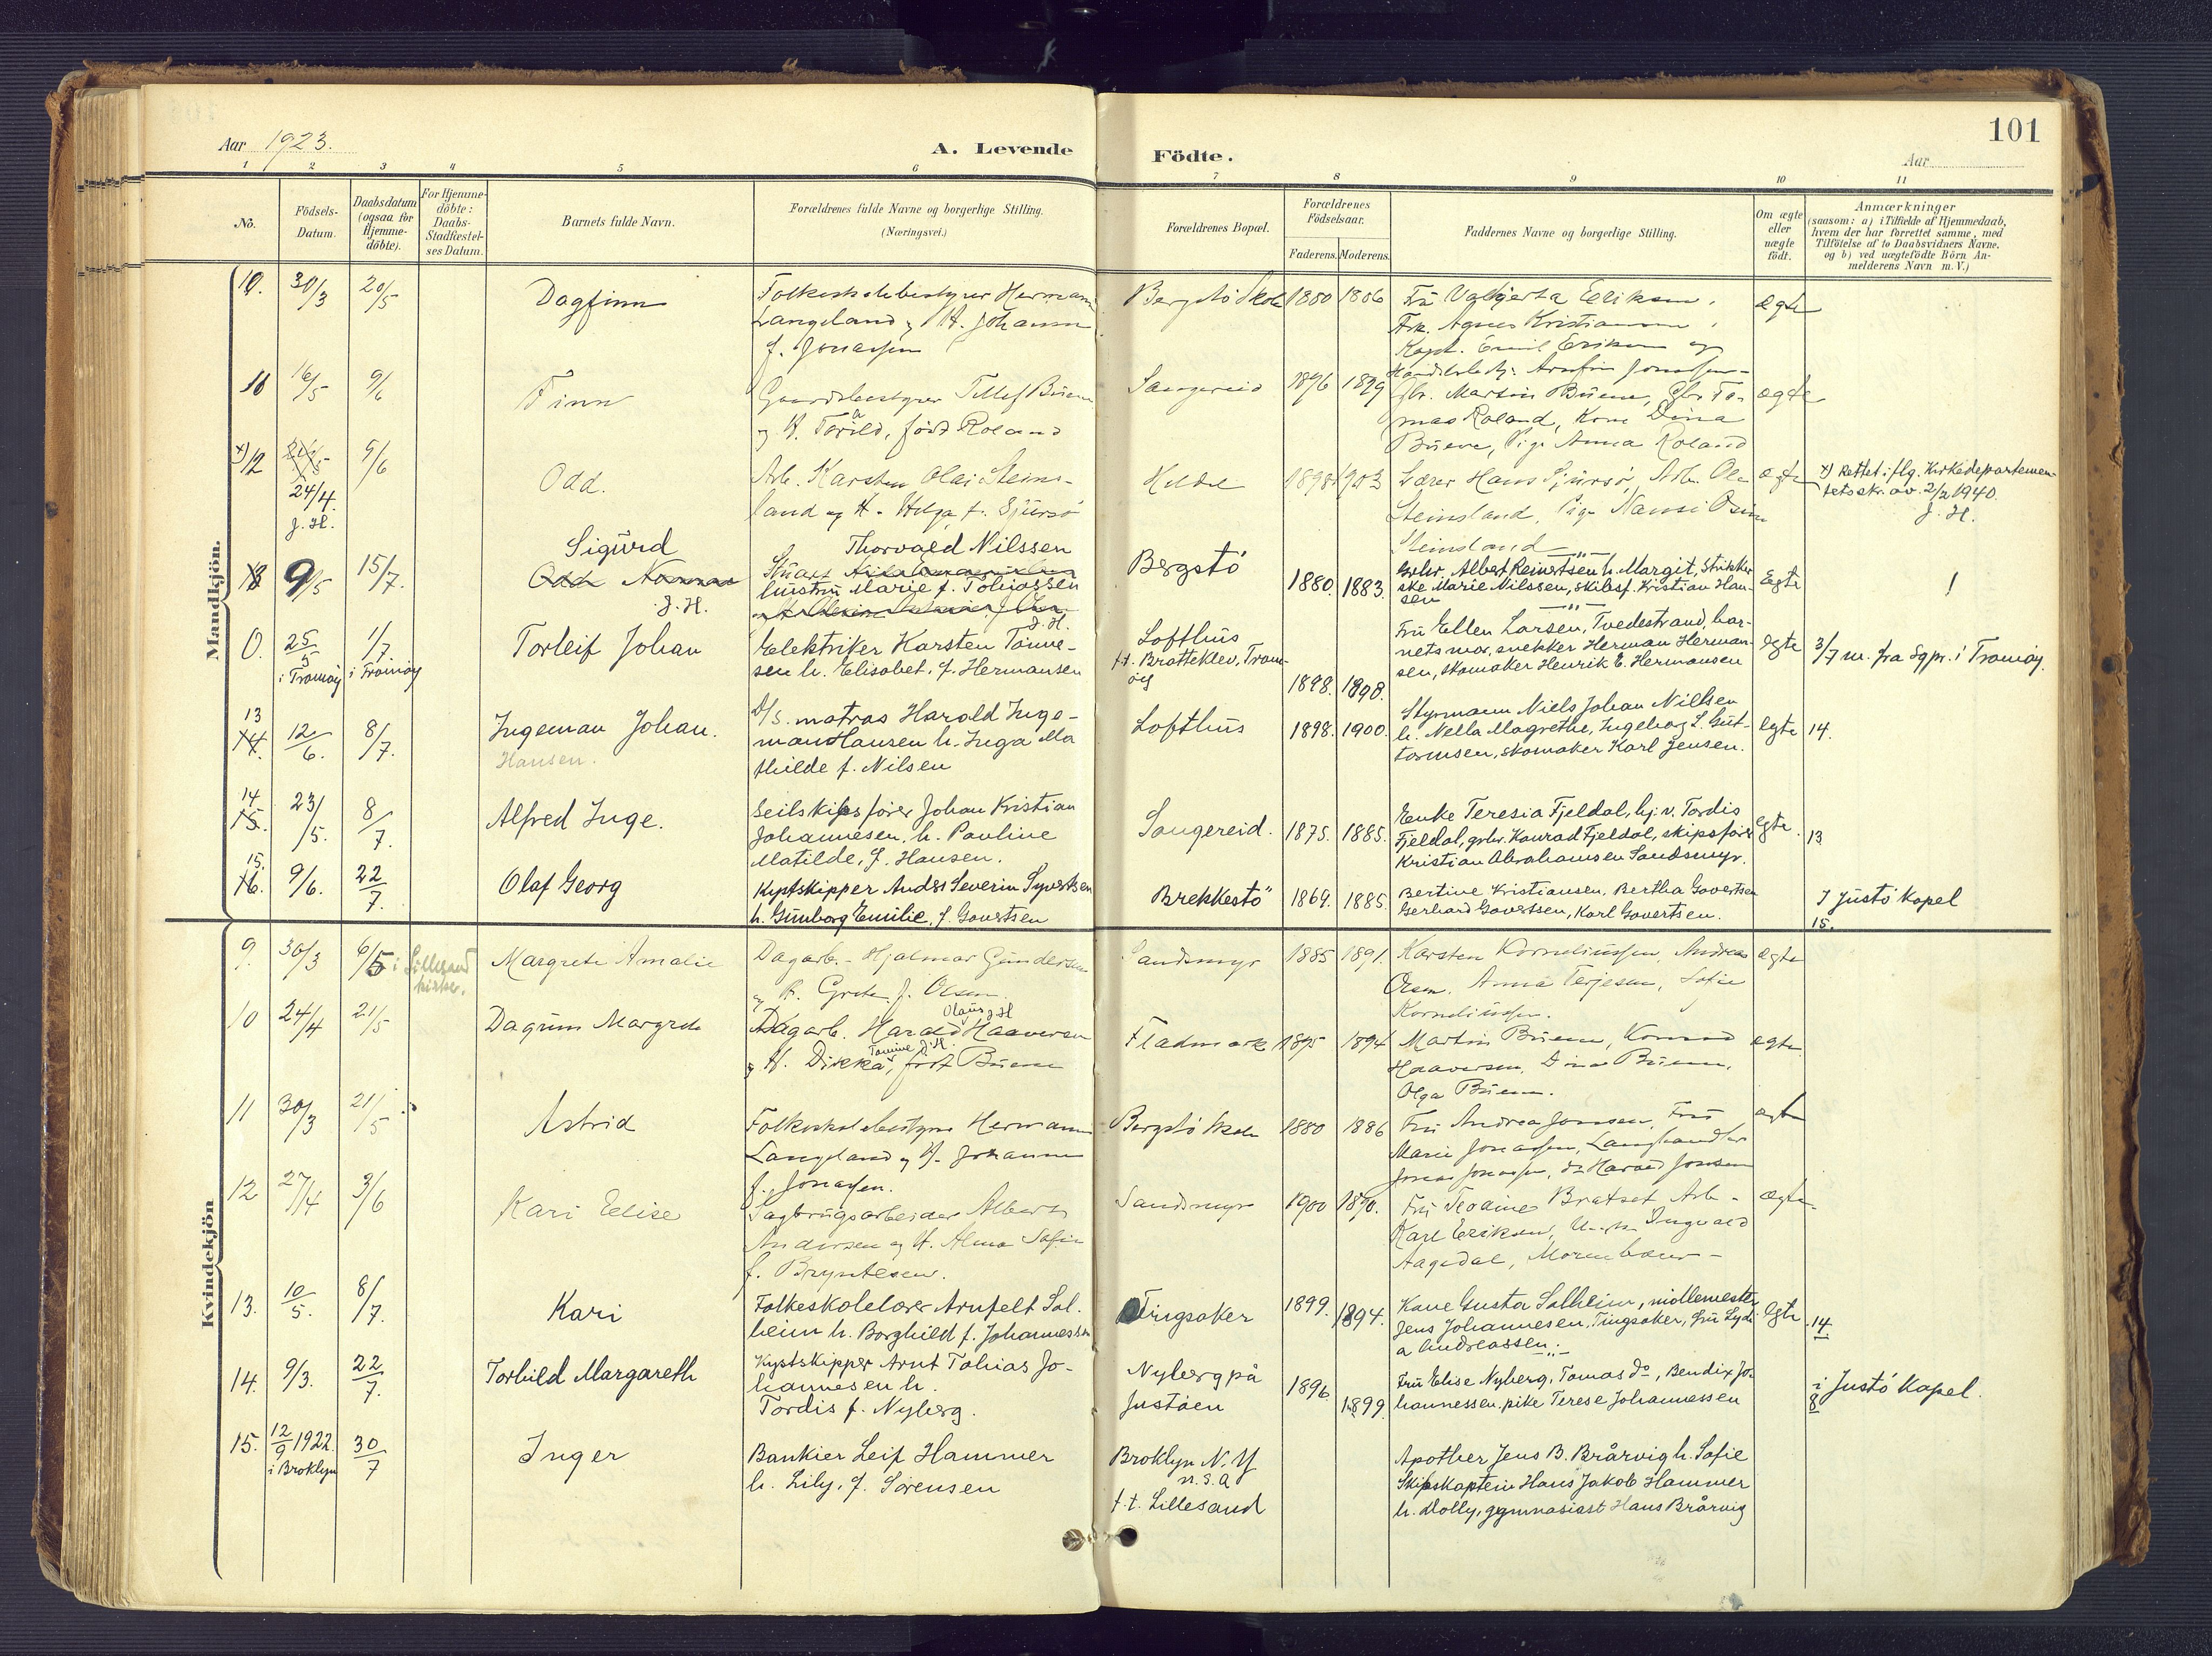 101
Aar 1923.
A. Levende Födte.
Aar
1 2 3 4 5 6 7 8 9 10 11
No.
Födsels-
Datum.
Daabsdatum
(ogsaa for
Hjemme-
döbte).
For Hjemme-
döbte:
Daabs-
Stadfæstel-
ses Datum.
Barnets fulde Navn.
Forældrenes fulde Navne og borgerlige Stilling.
(Næringsvei.)
Forældrenes Bopæl.
Forældrenes
Födselsaar.
Faderens. Moderens.
Faddernes Navne og borgerlige Stilling.
Om ægte
eller
uægte
födt.
Anmærkninger
(saasom: a) i Tilfælde af Hjemmedaab,
hvem der har forrettet samme, med
Tilföielse af to Daabsvidners Navne.
og b) ved uægtefödte Börn An-
melderens Navn m. V.)
Mandkjön.
30/3 20/5 Dagfinn
Folkeskolebestyrer Hermann
Langeland og H. Johanne
f. Jonassen
Bergstö Skole 1880 1886
Fru Valgjerta Eriksen,
Frk. Agnes Kristiansen,
Kapt. Emil Eriksen og
Handelsbestyr Arnfin Jonassen
ægte
16/5 9/6 Finn
Gaardsbestyrer Tellef Buene
og H. Torild, født Roland
Saugereid 1896 1899
Gbr. Martin Buene, Gbr. To-
mas Roland, Kone Dina
Buene, Pige Anna Roland
ægte
x) 12 24/4. J. H. 9/6 Odd.
Arb. Karsten Olai Steins-
land og H. Helga f. Sjursø
Heldal 1898 1903
Lærer Hans Sjursø, Arb. Ole
Steinsland, Pige Nansi Osun
Steinsland
ægte
x) Rettet iflg. Kirkedepartemen-
tets skr. av 2/2 1940.
J. H.
9/5 15/7. Sigurd
Odd Norman
J. H.
Thorvald Nilssen
Stuart
hustru Marie f. Tobiassen
J. H.
Bergstö 1880. 1883.
Grbr. Albert Reinertsen h. Margit, strikker-
ske Marie Nilssen, skibsf. Kristian Han-
sen
Egte
0. 25/5 i Tromöy 1/7. i Tromöy Torleif Johan
Elektriker Karsten Tönne-
sen h. Elisabet. f. Hermansen
Lofthus
t.t. Bratteklev, Trom-
öy
1898. 1898.
Fru Ellen Larsen, Tvedestrand, bar-
nets mor, snekker Herman Herman-
sen, skomaker Henrik E. Hermansen
egte
3/7 m. fra Sgpr. i Tromöy.
13 14. 12/6. 8/7. Ingeman Johan.
Hansen.
D/S. matros Harold Inge-
man Hansen h. Inga Ma
thilde f. Nilsen
Lofthus 1898. 1900.
Styrmann Niels Johan Nielsen
h. Nella Magrethe, Ingeborg L. Gut-
tormsen, skomaker Karl Jensen.
egte 14.
14 15. 23/5. 8/7. Alfred Inge.
Seilskibsförer Johan Kristian
Johannesen, h. Pauline
Matilde, f. Hansen.
Saugereid. 1875. 1885.
Enke Teresia Fjeldal, hj. v. Tordis
Fjeldal, grbr. Konrad Fjeldal, skipsförer
Kristian Abrahamsen Sandsmyr.
egte. 13
15. 16. 9/6. 22/7. Olaf Georg
Kystskipper Anders Severin Syvertsen
h. Gunborg Emilie, f. Govertsen
Brekkestö 1869. 1885.
Bertine Kristiansen, Bertha Govertsen
Gerhard Govertsen, Karl Govertsen.
I Justö Kapel
15.
Kvindekjön
9. 30/3 6/5 i Lillesand kirke. Margrete Amalie
Dagarb. Hjalmar Gundersen
og H. Grete f. Olsen
Sandsmyr 1885 1891.
Karsten Korneliussen, Andreas
Olsen, Anna Terjesen, Sofie
Korneliussen.
ægte
10 24/4 21/5 Dagrun Margrete
Olaus J H
Dagarb. Harald Haaversen
Tomine J. H.
og H. Dikka, født Buene
Fladmark 1895 1894
Martin Buene, Konrad
Haaversen, Dina Buene,
Olga Buene.
ægte
11 30/3 21/5 Astrid
Folkeskolebestyrer Hermann
Langeland og H. Johanne
f. Jonassen.
Bergstö Skole 1880 1886
Fru Andrea Jonsen, Fru
Marie Jonassen, Landhandler
Jonas Jonassen, do Harald Jonsen
ægte
12 27/4 3/6 Kari Elise
Sagbrugsarbeider Albert
Andersen og H. Alma Sofie
f. Bryntesen.
Sandsmyr 1900 1890.
Fru Teodine Bratset Arb-
Karl Eriksen, Ingvald
Aagedal,
ægte
13. 10/5. 8/7. Kari
Folkeskolelærer Arnfelt Sol-
heim h. Borghild f. Johannessen
Tingsaker 1899. 1894.
Kone Gusta Solheim, möllemester
Jens Johannesen, Tingsaker, fru Lydi
a Andreassen.
egte 14.
14. 9/3. 22/7. Torhild Margareth
Kystskipper Arnt Tobias Jo-
hannesen h.
Tordis f. Nyberg.
Nyberg på
Justöen
1896. 1899
Fru Elise Nyberg, Tomas do, Bendix Jo-
hannessen, pike Terese Johannessen
i Justö Kapel.
15. 12/9 1922. i Broklyn 30/7 Inger
Bankier Leif Hammer
h. Lily, f. Sörensen
Broklyn N.Y
U.S.A
t.t. Lillesand
Apotker Jens B. Brårvig h. Sofie
Skipskaptein Hans Jakob Hammer
h. Dolly, gymnasiast Hans Brårvig